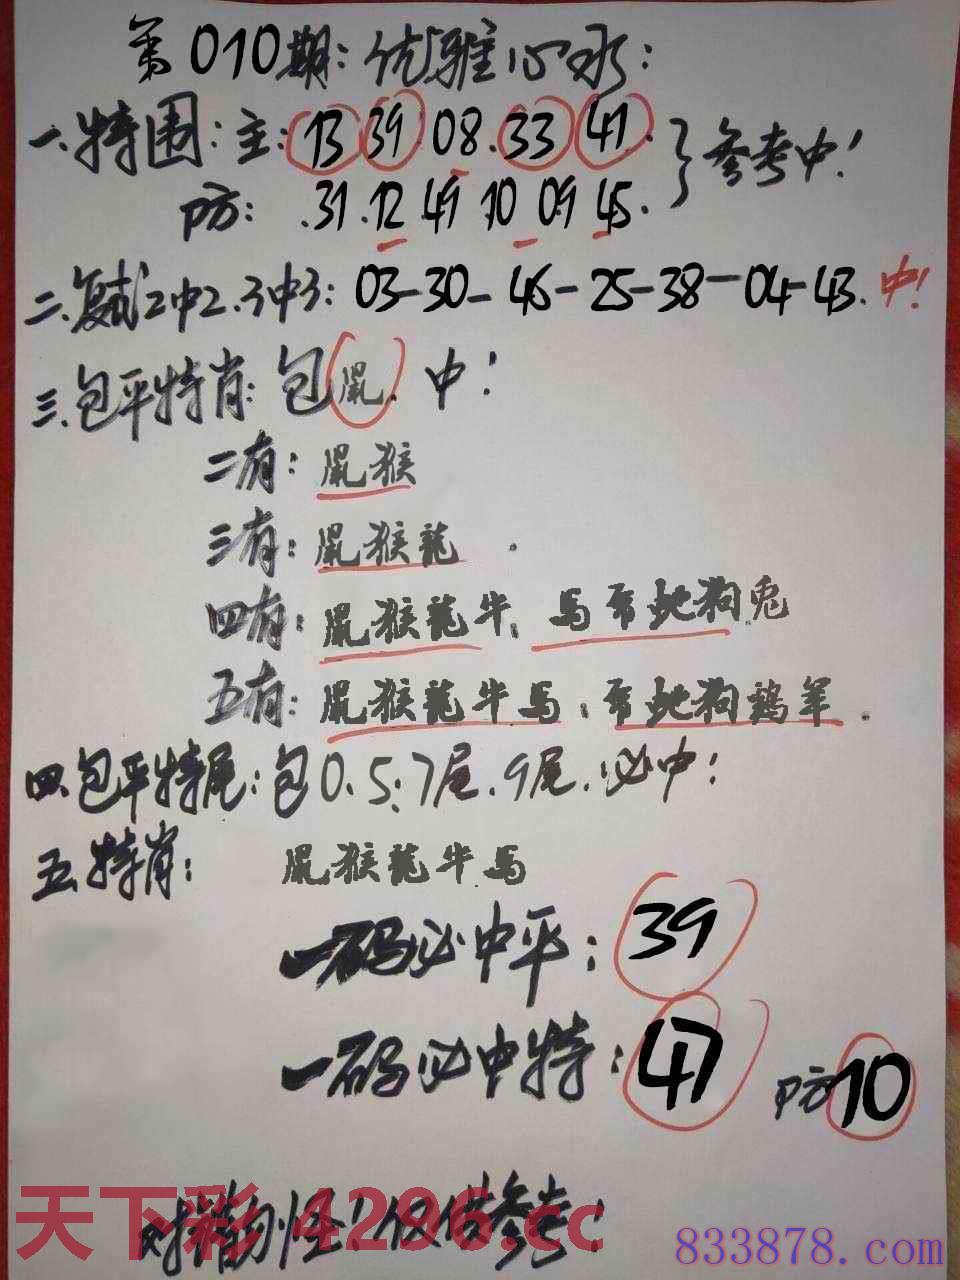 第010期：优雅心水：
一.特围：主：13 39 08.33 41.}参考中！
防：.31.12 49 10 09 45.
二.复试2中2.3中3：03-30-46-25-38-04-43.中！
三.包平特肖：包鼠.中！
二有：鼠猴
三有：鼠猴龍.
四有：鼠猴龍牛.馬 蛇狗兎
五有：鼠猴龍牛馬：蛇狗鷄羊.
四.包平特尾：包0.5.7尾.9尾.必中！
五.特肖：鼠猴龍牛马
一码必中平：39
一码必中特：47 防10
猜 怪！仅供参考！
天下彩 4296.cc
833878.com